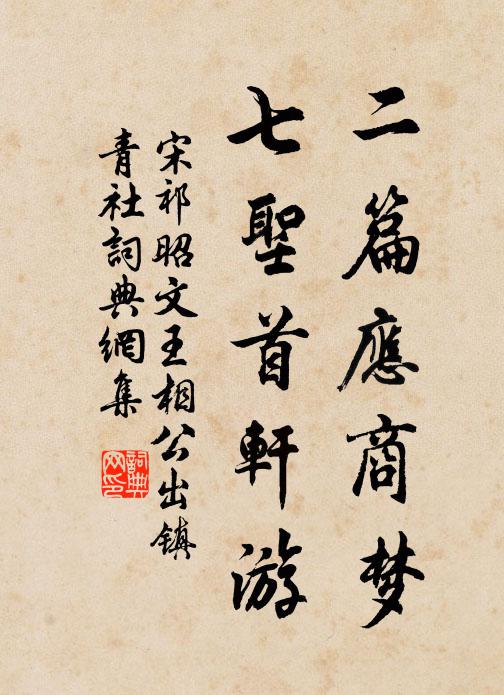 二篇應商梦
七聖首軒游
宋祁昭文王相公出鎮
青社詞典網集
詞典
网印